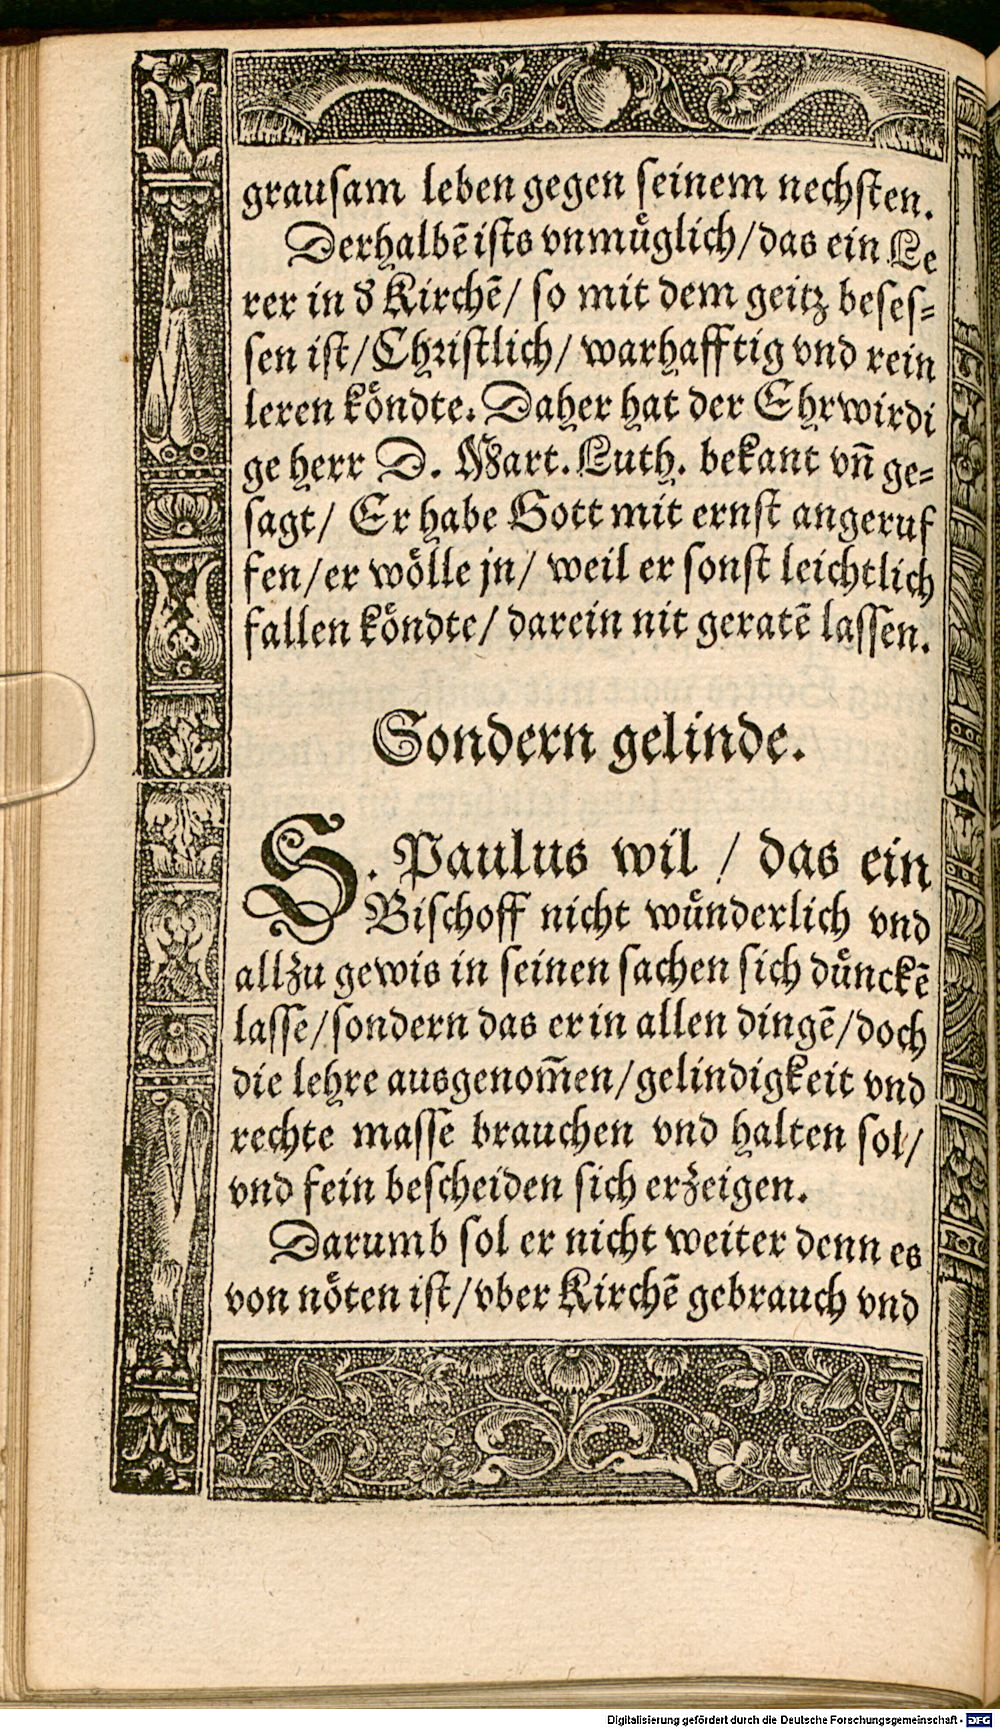 grausam leben gegen seinem nechsten.
Derhalbẽ ists vnmuͤglich/das ein Le
rer in d̕ Kirchẽ/ so mit dem geitz beses-
sen ist/Christlich/ warhafftig vnd rein
leren koͤndte. Daher hat der Ehrwirdi
ge herr D. Mart. Luth. bekant vñ ge-
sagt/ Er habe Gott mit ernst angeruf
fen/er woͤlle jn/ weil er sonst leichtlich
fallen koͤndte/ darein nit geratẽ lassen.
Sondern gelinde.
S. Paulus wil / das ein
Bischoff nicht wuͤnderlich vnd
allzu gewis in seinen sachen sich duͤnckẽ
lasse/sondern das er in allen dingẽ/doch
die lehre ausgenom̃en/gelindigkeit vnd
rechte masse brauchen vnd halten sol/
vnd fein bescheiden sich erzeigen.
Darumb sol er nicht weiter denn es
von noͤten ist/vber Kirchẽ gebrauch vnd
Digitalisierung gefördert durch die Deutsche Forschungsgemeinschaft - DFG